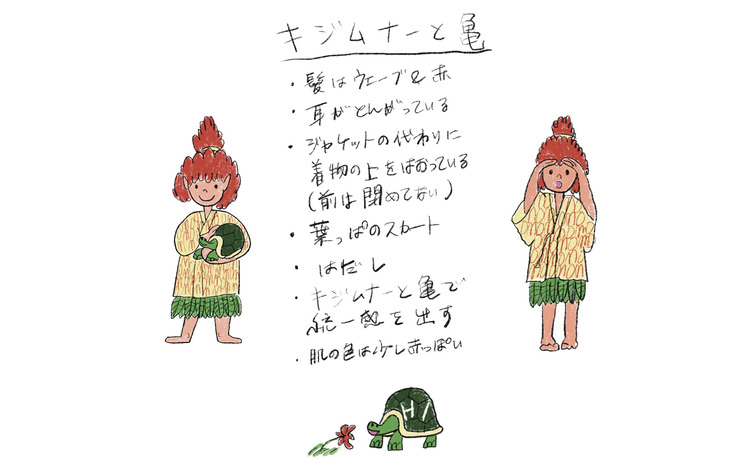 キジムナーと亀
・髪はウェーブ&赤
・耳がとんがっている
・ジャケットの代わりに
着物の上をはおっている
(前は閉めてない)
・葉っぱのスカート
・はだし
・キジムナーと亀で
統一感を出す
・肌の色は少し赤っぽい
HI